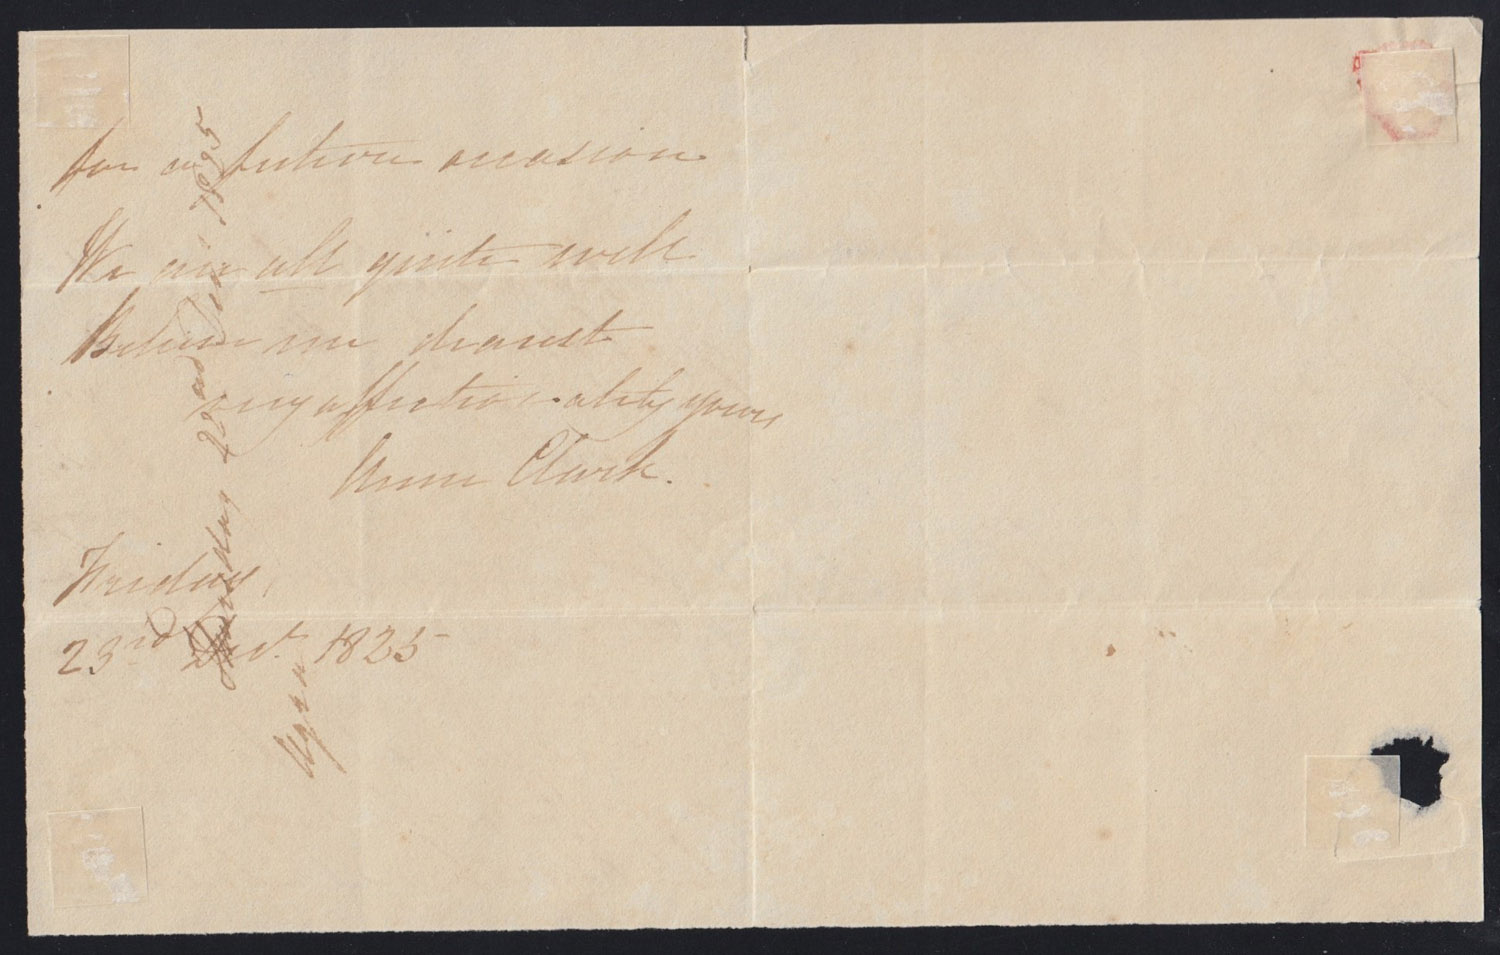 for a future occasion
We are all quite well
Believe me dearest
very affectionately yours
Anne Clark.
Friday,
23rd Decr. 1825
day 22nd Dec 1825